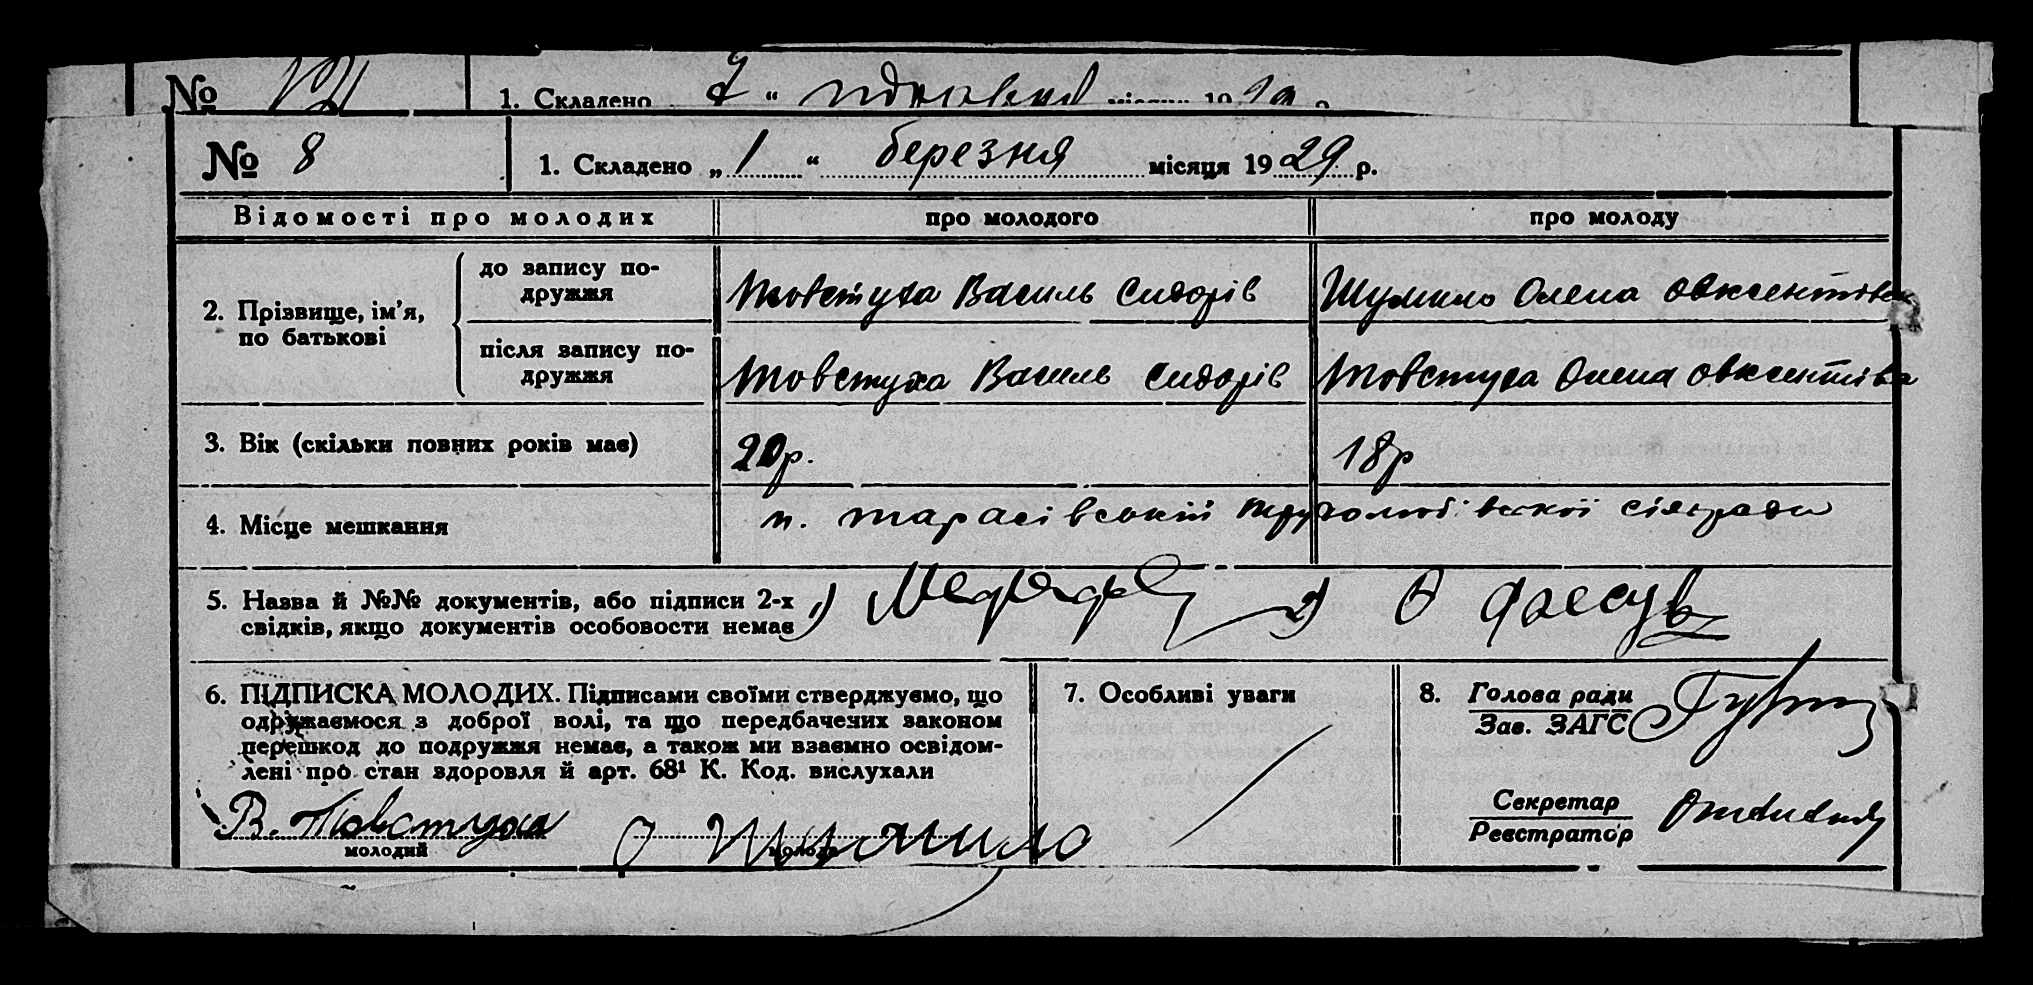 №
1. Складено "
№ 8
1. Складено „ 1 “ березня місяця 1929 р.
Відомості про молодих
про молодого
про молоду
2. Прізвище, ім'я, по батькові
до запису подружжя
Товстуха Василь Сидорів
Шумило Олена Овксентівна
після запису подружжя
Товстуха Василь Сидорів
Товстуха Олена Овксентівна
3. Вік (скільки повних років має)
20р.
18р
4. Місце мешкання
п. Тарасівський сільради
5. Назва й №№ документів, або підписи 2-х
свідків, якщо документів особовости немає
1)
2) О
6. ПІДПИСКА МОЛОДИХ. Підписами своїми стверджуємо, що
одружаємося з доброї волі, та що передбачених законом
перешкод до подружжя немає, а також ми взаємно освідом-
лені про стан здоровля й арт. 68¹ К. Код. вислухали
В. Товстуха
О Шумило
молодий
молода
7. Особливі уваги
8. Голова ради
Зав. ЗАГС
Секретар
Реєстратор